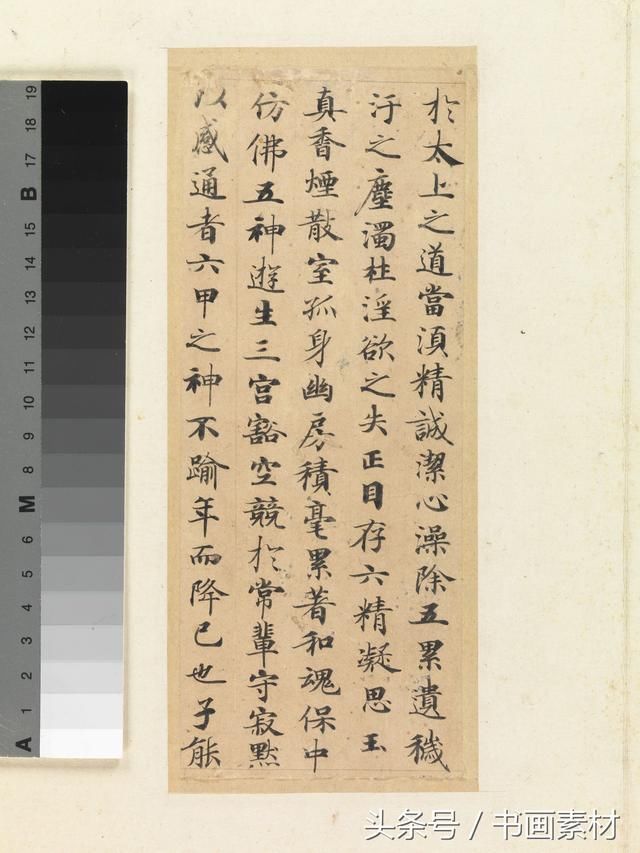 於太上之道當湏精誠潔心澡除五累遺穢
汙之塵濁杜淫欲之失正目存六精凝思玉
真香煙散室孤身幽房積毫累著和魂保中
仿佛五神遊生三宮豁空競於常輩守寂默
以感通者六甲之神不踰年而降已也子能
19
18
17
B
16
15
14
13
12
11
10
9
8
M
6
5
4
3
2
1
A
头条号 / 书画素材